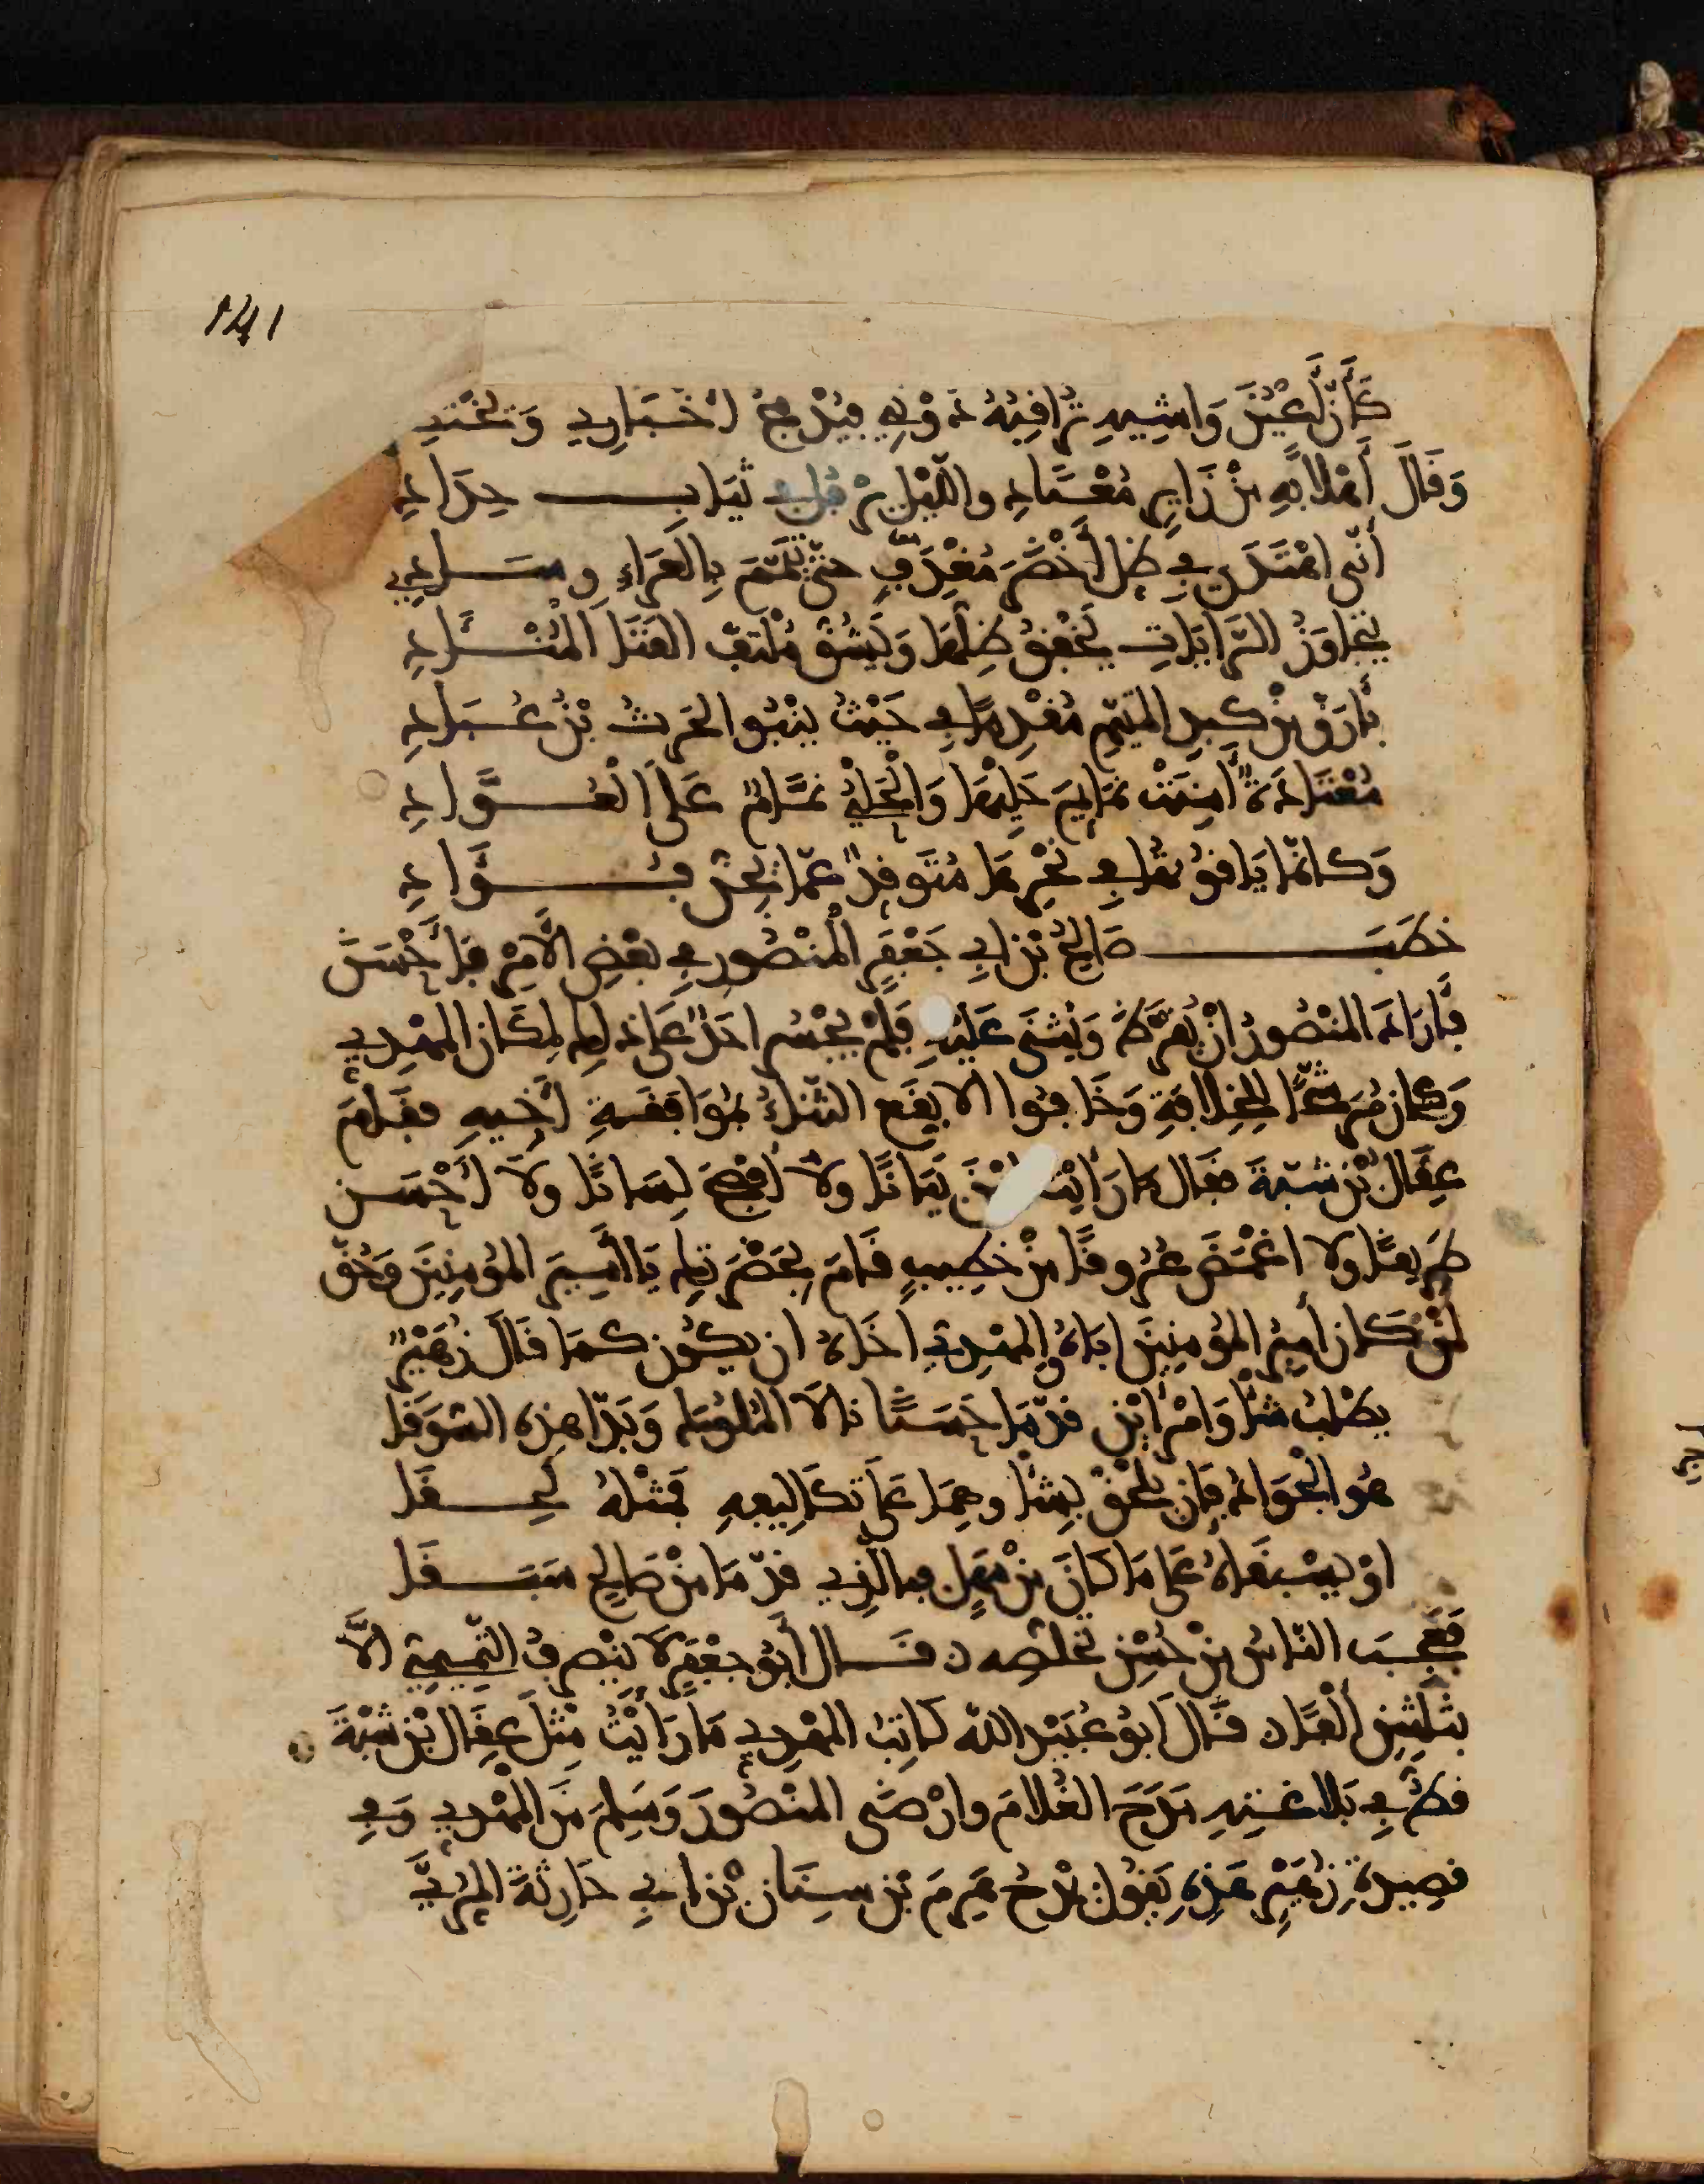 141
كَأَنَّ عَيْنَ وَاشِيهِ تُرَاقِبُهُ دُونِي فَيُدْرِجُ أَخْبَارِي وَ
وَقَالَ أَهْلًا بِهِ مِنْ زَايِرٍ مُعْتَادِ واللَّيْلُ يَرْفُلُ فِي ثِيَابِ حِدَادِ
أَنَّى اهْتَدَى فِي ظِلِّ أَخْضَرَ مُغْدِفٍ حتّى تَيَمَّمَ بِالعَرَاءِ وِسَادِي
يَتَجَاوَزُ الرَّايَاتِ يَخْفِقُ ظِلُّهَا وَيَشُقُّ مُلْتَفَّ القَنَا الْمُنْآدِ
بِأَرَقَّ مِنْ كَبِدِ المُتَيَّمِ مُقْدِمًا فِي حَيْثُ يَنْبُو الحَرِثُ بْنُ عُبَادِ
مُعْتَادَةٌ أَمِنَتْ نَمَايِمَ حَلْيِهَا وَالْحَلْيُ نَمَّامٌ عَلَى الْعُوَّادِ
وَكَأَنَّمَا يَاقُوتُهَا فِي نَحْرِهَا مُتَوَقِّدٌ عَمَّا يُجِنُّ فُؤَادِ
خطَبَ صَالِحُ بْنُ أَبِي جَعْفَرٍ الْمَنْصُورِ فِي بَعْضِ الأَمْرِ فَأَحْسَنَ
فَأَرَادَ المَنْصُورُ أَنْ يُقَرِّظَهُ وَيُثْنَى عَلَيْهِ فَلَمْ يَجْسُرْ أحَدٌ عَلَى ذلِكَ لِمَكَانِ المَهْدِيّ
وَكَانَ مُرَشَّحًا لِلخِلَافَةِ وَخَافُوا أَلا يَقَعَ الثَّنَاءُ بِمُوَافَقَةِ أَخِيهِ فقَامَ
عِقَالُ بْنُ شَبَّةَ فقَال مَا رَأَيْتُ أَبْيَنَ بَيَانًا ولَا أَفْصَحَ لِسَانًا وَلَا أَحْسَنَ
طَرِيقًا ولا أغْمَضَ عُرُوقًا مِنْ خَطِيبٍ قَامَ بِحَضْرَتِكَ يَا أَمِيرَ المُؤمِنِينَ وَحُقَّ
لِمَنْ كَانَ أَمِيرُ المُؤمِنِينَ أَبَاهُ والمَهْدِيُّ أخَاهُ أن يَكُونَ كَمَا قَالَ زُهَيْرٌ
يَطْلُبُ شَأْوَ امْرَأَيْنِ قَدَّمَا حَسَنًا نَالَا المُلُوكَ وَبَذَّا هذِهِ السُّوَقَا
هُوَ الْجَوَادُ فَإِن يَلْحَقْ بِشَأْوِهِمَا عَلَى تَكَالِيفِهِ فَمِثْلُهُ لَحِقَا
أوْ يَسْبِقَاهُ عَلَى مَا كَانَ مِنْ مَهَلٍ فبالّذِي قَدَّمَا مِنْ صَالِحٍ سَبَقَا
فَعَجِبَ النَّاسُ مِنْ حُسْنِ تَخَلُّصِهِ فَقَالَ أَبُو جَعْفَرٍ لَا يَنْصَرِفُ التَّمِيمِيُّ إِلَّا
بِثَلَثِينَ أَلْفًا قَالَ أبُو عُبَيْدِ اللّهِ كَاتِبُ المَهْدِيِّ مَا رَأَيْتُ مِثْلَ عِقَالِ بْنِ شَبَّةَ
قطُّ فِي بَلَاغَتِهِ مَدَحَ الغُلَامَ وأرْضَى المَنْصُورَ وَسَلِمَ مِنَ المَهْدِيِّ وَفِي
قصِيدَةِ زُهَيْرٍ هَذِهِ يَقُولُ يَمْدَحُ هَرِمَ بْنَ سِنَانِ بْنِ أَبِي حَارِثَةَ المُرِّيَّ